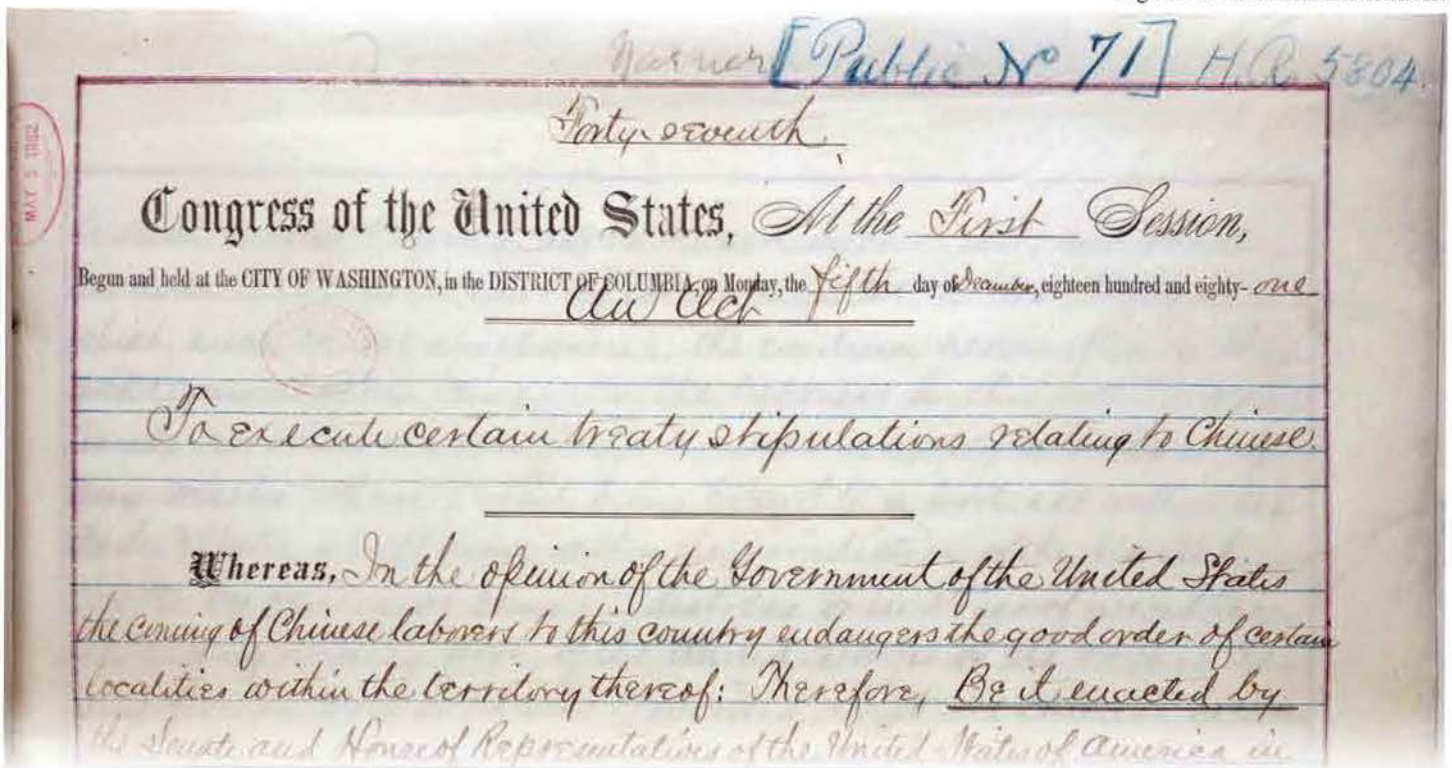 [Public No 71] H.R. 5804.
Forty-seventh
Congress of the United States, At the First Session,
Begun and held at the CITY OF WASHINGTON, in the DISTRICT OF COLUMBIA, on Monday, the fifth day of December, eighteen hundred and eighty-one
An Act
MAY 5 1882
To execute certain treaty stipulations relating to Chinese.
Whereas, In the opinion of the Government of the United States
the coming of Chinese laborers to this country endangers the good order of certain
localities within the territory thereof: Therefore, Be it enacted by
the Senate and House of Representatives of the United States of America in